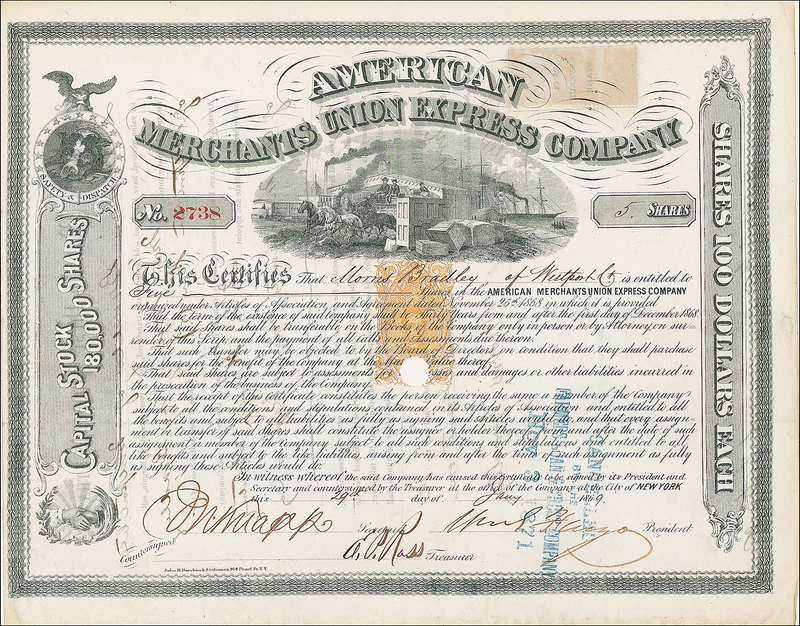 AMERICAN
MERCHANTS UNION EXPRESS COMPANY
SAFETY & DISPATCH
No. 2738
5 SHARES
CAPITAL STOCK 180,000 SHARES
SHARES 100 DOLLARS EACH
This Certifies That Morris Bradley of Westport Ct. is entitled to
Five Shares in the AMERICAN MERCHANTS UNION EXPRESS COMPANY
organized under Articles of Association, and Agreement dated November 25th 1868 in which it is provided
That the term of the existence of said company shall be thirty Years from and after the first day of December 1868.
That said Shares shall be transferable on the Books of the Company only in person or by Attorney, on sur-
render of this Scrip and the payment of all calls and Assessments due thereon.
That such transfer may be objected to by the Board of Directors, on condition that they shall purchase
said shares for the benefit of the Company at the
That said shares are subject to assessment for losses and damages or other liabilities incurred in
the prosecution of the business of the Company.
That the receipt of this certificate constitutes the person receiving the same a member of the Company
subject to all the conditions and stipulations contained in its Articles of Association and entitled to all
the benefits and subject to all liabilities as fully as signing said Articles would do: and that every assign-
ment or transfer of said shares shall constitute the holder thereof from and after the date of such
assignment a member of the Company subject to all such conditions and stipulations and entitled to all
like benefits and subject to the like liabilities, arising from and after the time of such assignment as fully
as signing these Articles would do.
In witness whereof the said Company has caused this certificate to be signed by its President and
Secretary and countersigned by the Treasurer at the office of the Company at the City of NEW YORK
this 29th day of Jany 1869
Secretary
President
Countersigned
Treasurer
John H. Duyckinck, Stationer, 168 Pearl St. N.Y.